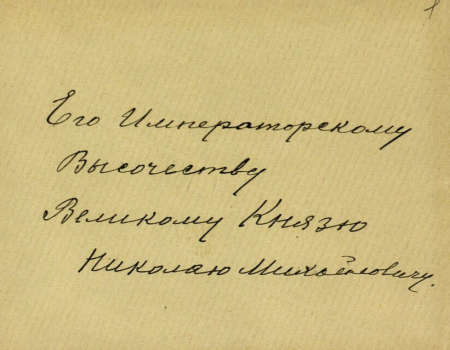 Его Императорскому
Высочеству
Великому Князю
Николаю Михайловичу.